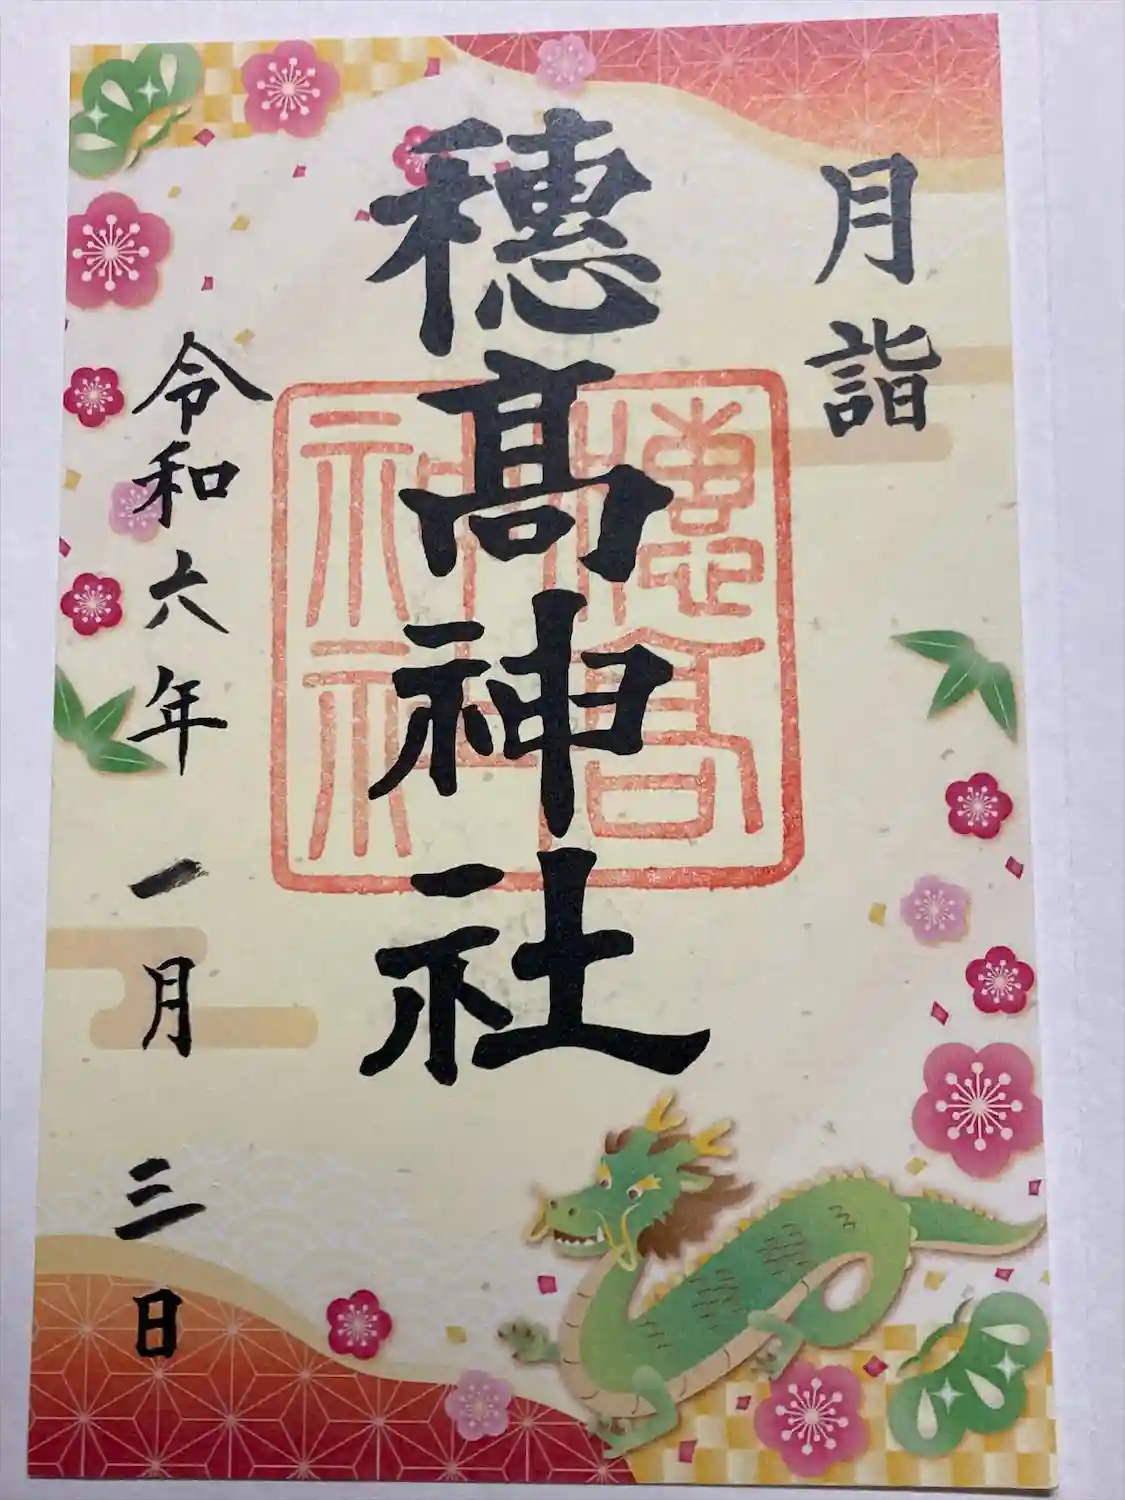 月詣
穂髙神社
穂高神社
令和六年一月三日